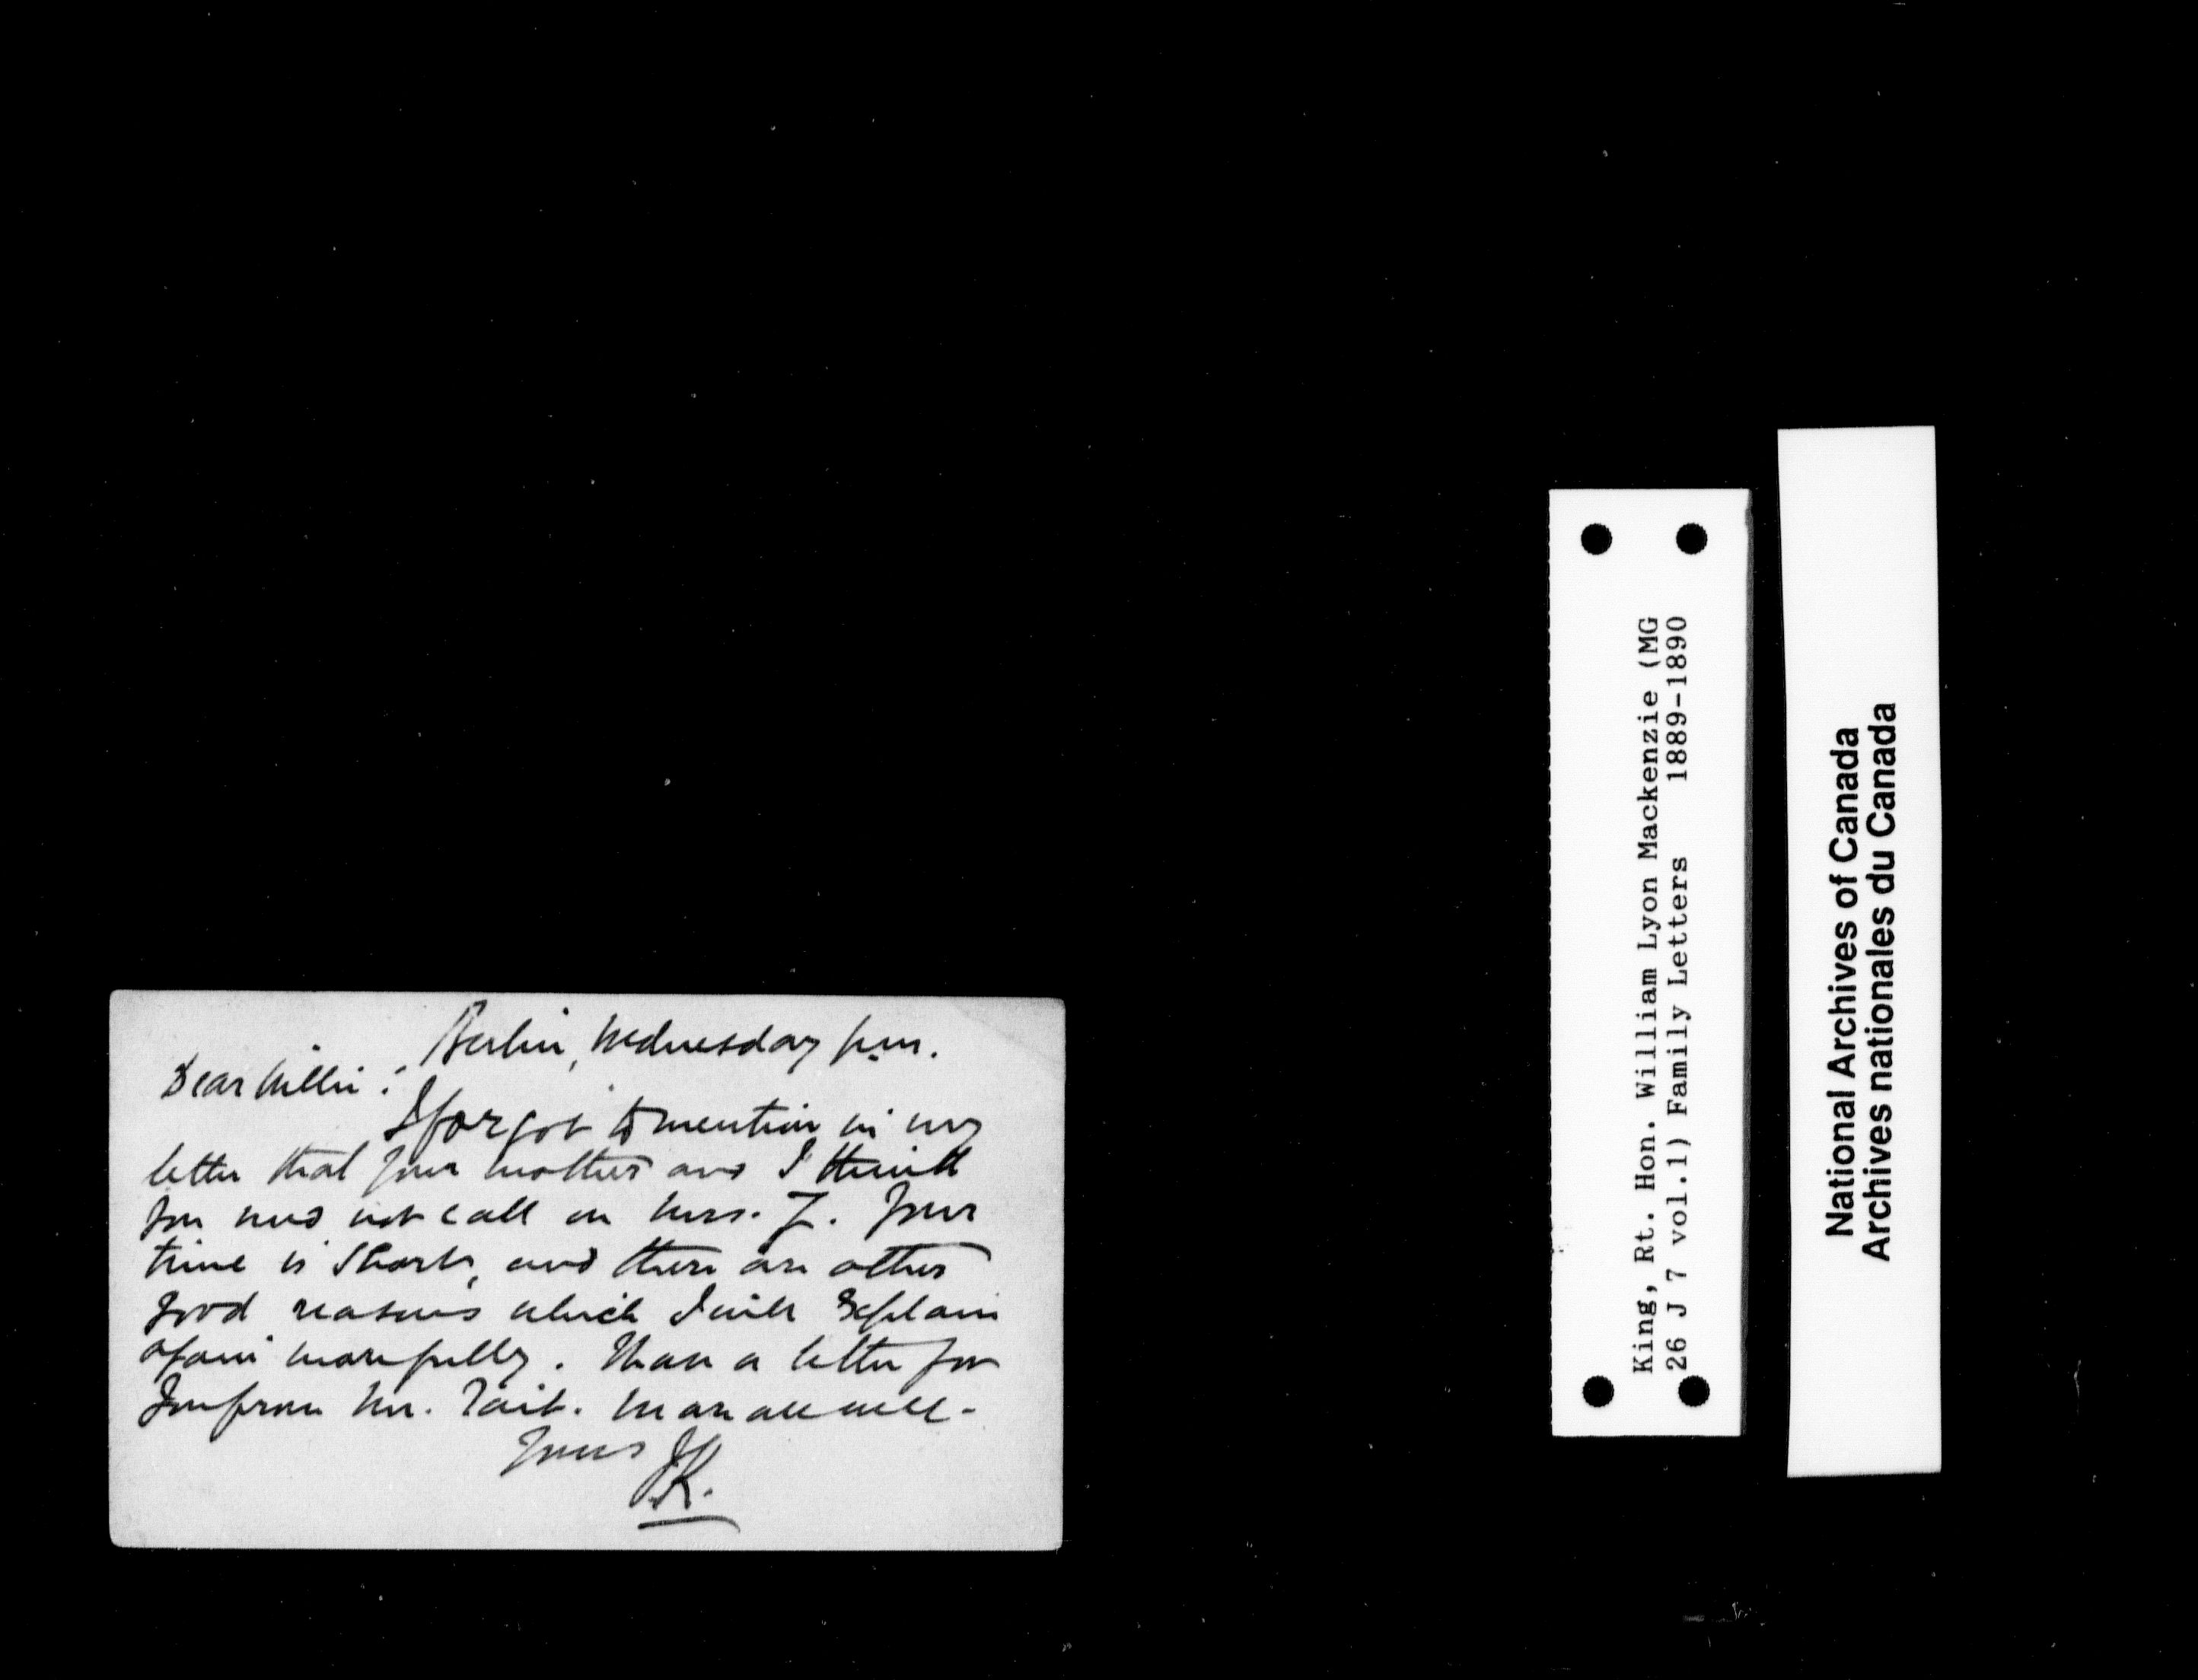 Berlin, Wednesday p.m.
Dear Willie:
I forgot to mention in my
letter that your mother and I think
you need not call on Mrs. Z. Your
time is short, and there are other
good reasons which I will explain
again more fully. Have a letter for
you from Mr. Tait. We are all well.
Yours
J.K.
King, Rt. Hon. William Lyon Mackenzie (MG
26 J 7 vol.1) Family Letters 1889-1890
National Archives of Canada
Archives nationales du Canada